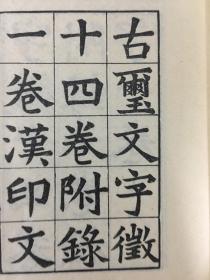 古璽文字徵
十四卷附錄
一卷漢印文